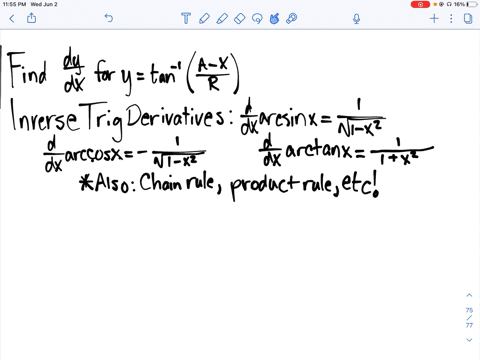 11:55 PM Wed Jun 2
16%
Find dy/dx for y = tan⁻¹ (A-X/R)
Inverse Trig Derivatives: d/dx arcsinx = 1/√1-x²
d/dx arccosx = - 1/√1-x² d/dx arctanx = 1/1+x²
*Also: Chain rule, product rule, etc!
75
/
77